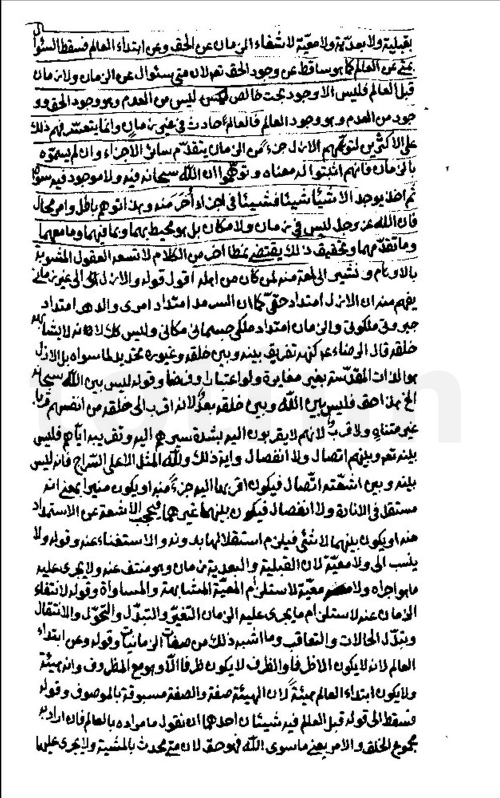 بقبلية ولا بعدية ولا معية لانتفاء الزمان عن الحق وعن ابتداء العالم فسقط السؤال
بمتى عن العالم كما هو ساقط عن وجود الحق تعالى لان متى سئوال عن الزمان ولا زمان
قبل العالم فليس الا وجود بحت خالص ليس من العدم وهو وجود الحق و
وجود من العدم و هو وجود العالم فالعالم حادث فى غير زمان وانما يتعسر فهم ذلك
على الاكثرين لتوهمهم الازل جزء من الزمان يتقدم سائر الاجزاء وان لم يسموه
بالزمان فانهم اثبتوا له معناه وتوهموا ان الله سبحانه فيه ولا موجود فيه سواه
ثم اخذ يوجد الاشياء شيئا فشيئا فى اجزاء أخر منه وهذا توهم باطل وامر محال
فان الله عز وجل ليس فى زمان ولا مكان بل هو محيط بهما وبما فيهما وما معهما
وما تقدمهما وتحقيق ذلك يقتضى نمطا اخر من الكلام لا تسعه العقول المشوبة
بالاوهام و نشير الى لمعة منه لمن كان من اهله اقول قوله والازل الى غير زمان
يفهم منه ان الازل امتداد حقى كما ان السرمد امتداد امرى والدهر امتداد
جبروتى ملكوتى والزمان امتداد ملكى جسمانى مكانى وليس كذلك لانه لا يشابه
خلقه قال الرضا ع كنهه تفريق بينه وبين خلقه وغيوره تحديد لما سواه بل الازل
هو الذات المقدسة بغير مغايرة ولو اعتبارا وفرضا وقوله ليس بين الله سبحانه
الخ هذا حق فليس بين الله وبين خلقه بعد لانه اقرب الى خلقه من انفسهم قربا
غير متناه ولا قرب لانهم لا يقربون اليه بشدة سيرهم اليه وتقريبه اياهم فليس
بينه تعالى وبينهم اتصال ولا انفصال واية ذلك ولله المثل الاعلى السراج فانه ليس
بينه و بين اشعته اتصال فيكون اقربها اليه جزء منه او يكون منيرا بمعنى انه
مستقل فى الانارة ولا انفصال فيكون بينهما غيرهما فيحجب الاشعة عن الاستمداد
منه او يكون بينهما لا شئ فيلزم استقلالها بدونه والاستغناء عنه وقوله ولا
ينسب الى ولا معية لان القبلية والبعدية زمان وهو منتف عنه ولا يجرى عليه
ما هو اجراه ولا معية لاستلزام المعية المشابهة والمساواة وقوله لانتفاء
الزمان عنه لاستلزام ما يجرى عليه الزمان التغير والتبدل والتحول والانتقال
وتبدل الحالات والتعاقب وما اشبه ذلك من صفات الزمانيات وقوله وعن ابتداء
العالم لانه لا يكون الا ظرفا والظرف لا يكون ظرفا الا وهو مع المظروف وانه هيئة
ولا يكون ابتداء العالم هيئة لان الهيئة صفة والصفة مسبوقة بالموصوف وقوله
فسقط الى قوله قبل العالم فيه شيئان احدهما ان نقول ما مراده بالعالم فان اراد به
مجموع الخلق والامر يعنى ما سوى الله فهو حق لان متى محدث بالمشية ولا يجرى عليها